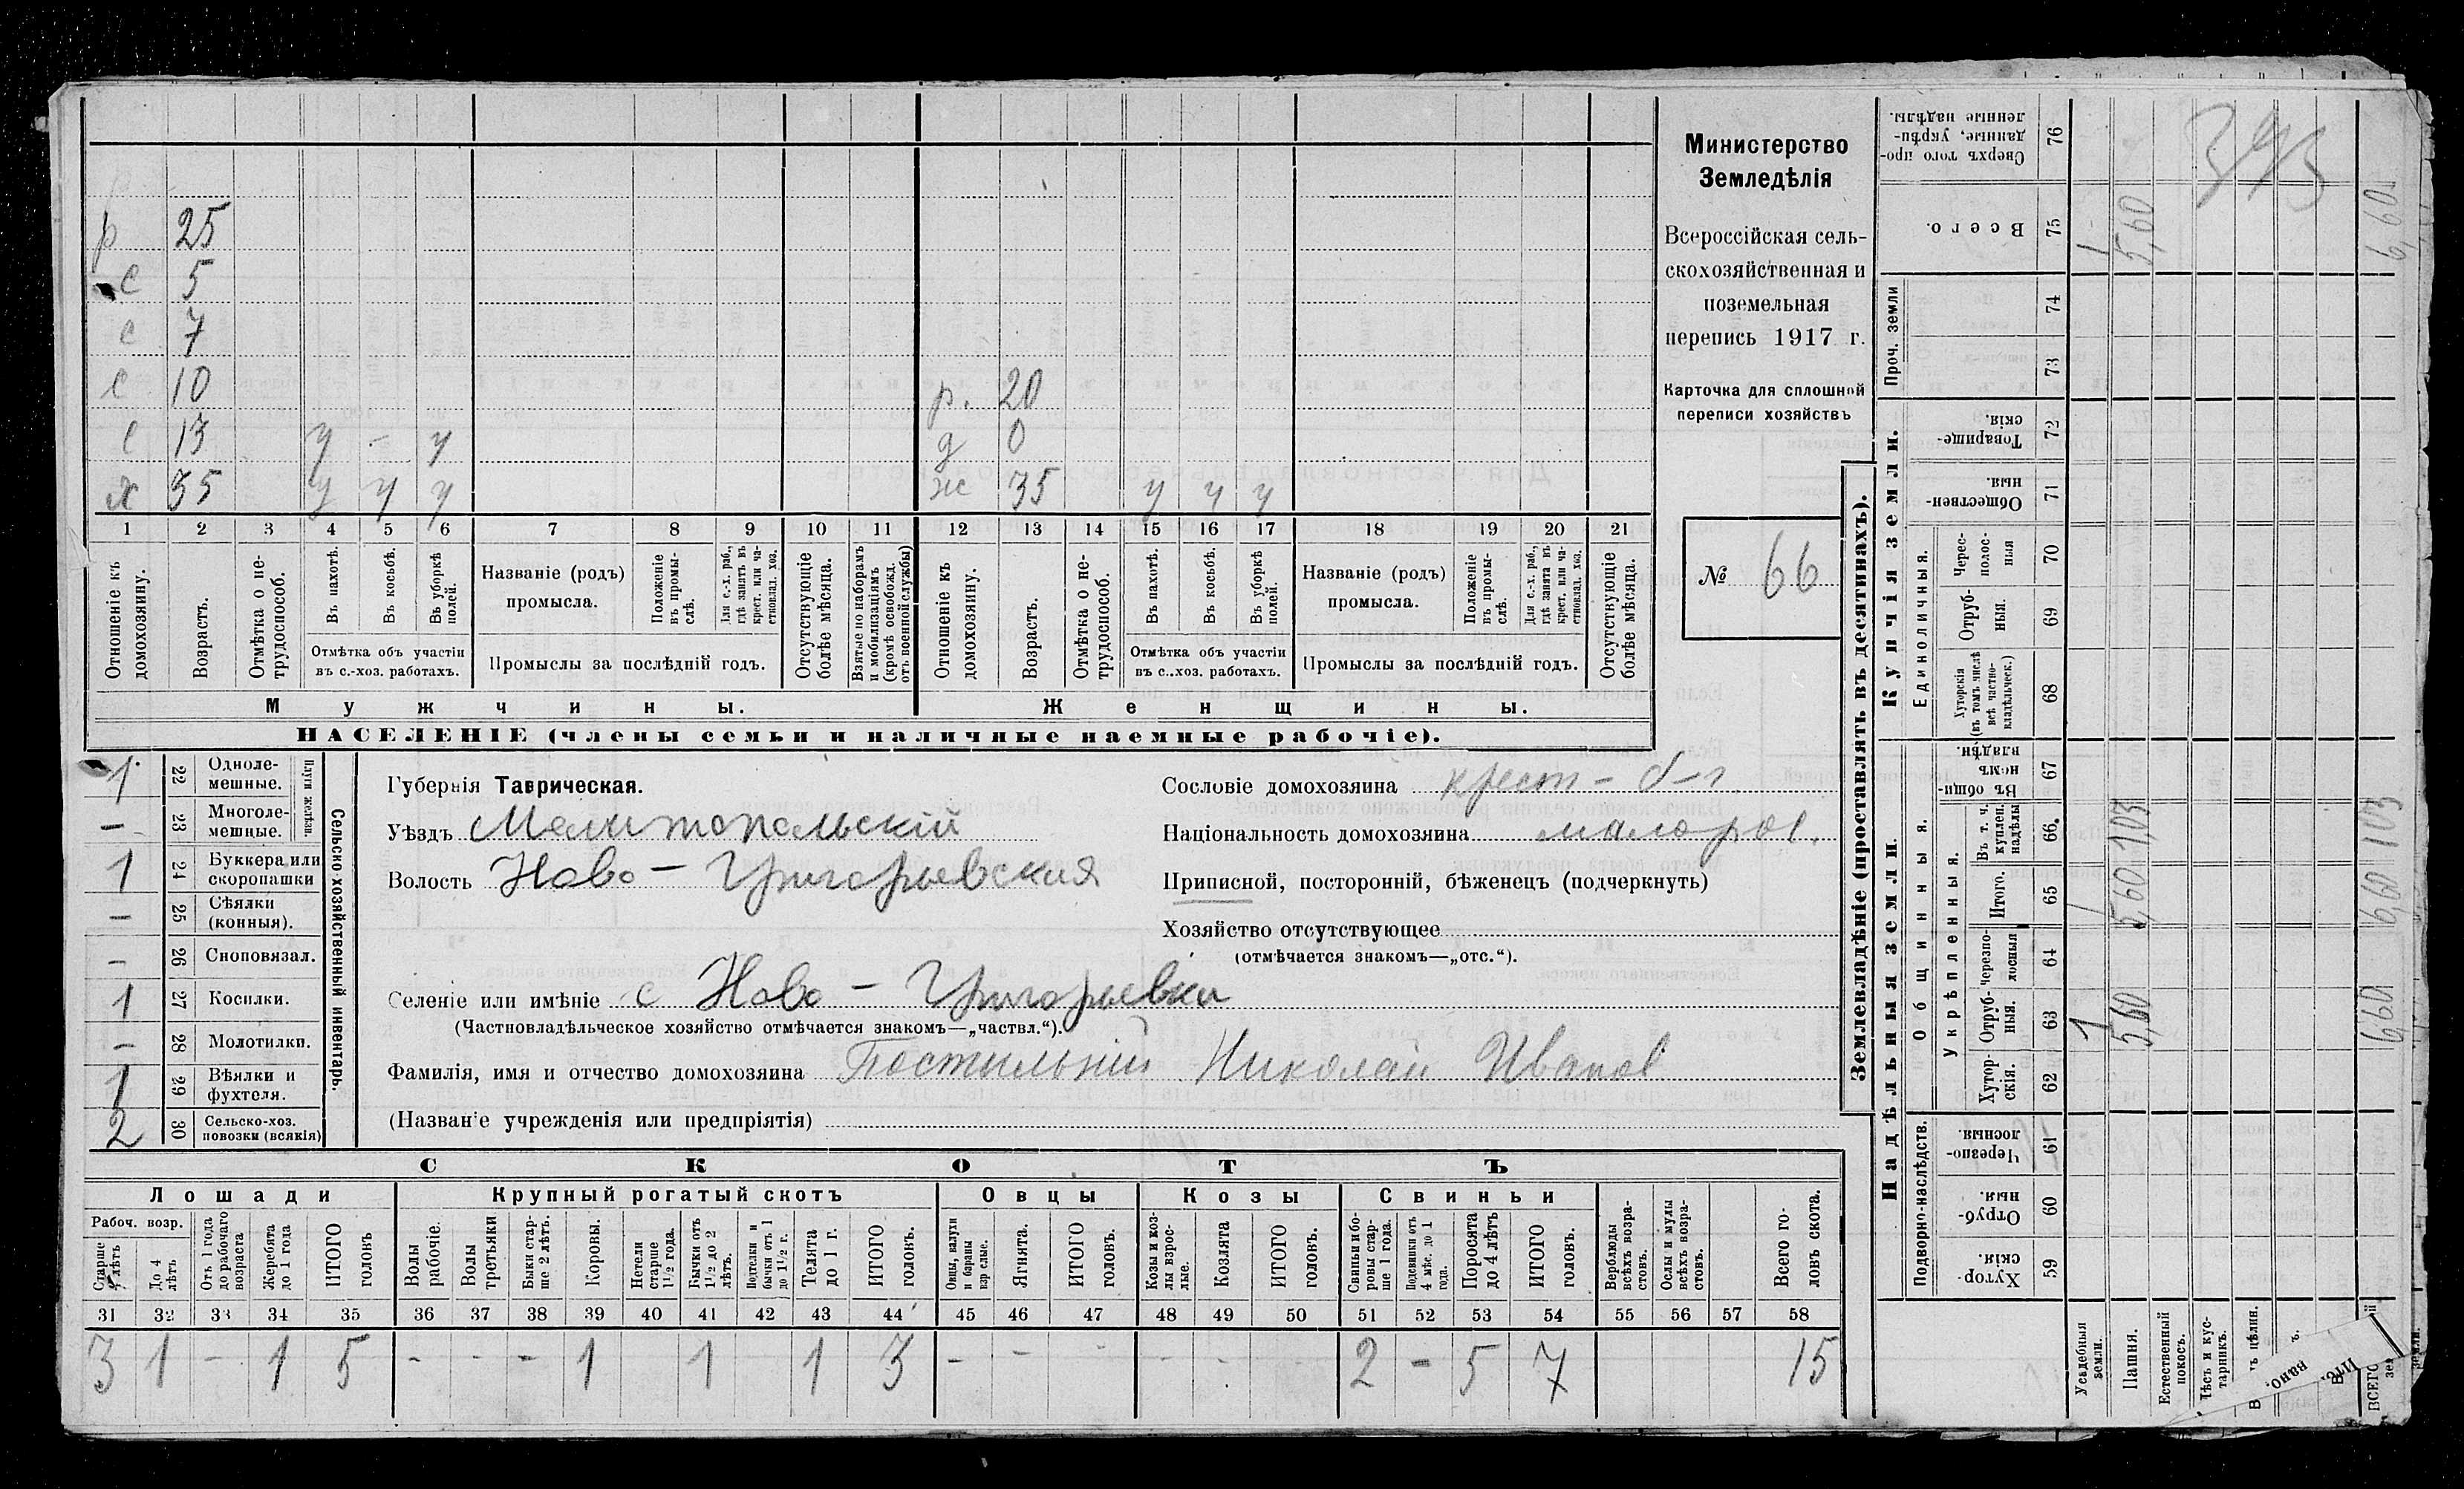 р 25
с 5
с 7
с 10 р. 20
с 13 у - у д 0
х 35 у у у ж 35 у у у
1 2 3 4 5 6 7 8 9 10 11 12 13 14 15 16 17 18 19 20 21
Отношеніе къ домохозяину.
Возрастъ.
Отмѣтка о не-
трудоспособ.
Въ пахотѣ.
Въ косьбѣ.
Въ уборкѣ полей.
Отмѣтка объ участіи
въ с.-хоз. работахъ.
Названіе (родъ)
промысла.
Положеніе
въ промы-
слѣ.
Для с.-х. раб.,
гдѣ занятъ въ
крест. или ча-
стновлад. хоз.
Промыслы за послѣдній годъ.
Отсутствующіе
болѣе мѣсяца.
Взятые по наборамъ
и мобилизаціямъ
(кромѣ освобожд.
отъ военной службы)
Отношеніе къ
домохозяину.
Возрастъ.
Отмѣтка о не-
трудоспособ.
Въ пахотѣ.
Въ косьбѣ.
Въ уборкѣ
полей.
Отмѣтка объ участіи
въ с..хоз. работахъ.
Названіе (родъ)
промысла.
Положеніе
въ промы-
слѣ.
Для с.-х. раб.,
гдѣ занята въ
крест. или ча-
стновлад. хоз.
Промыслы за послѣдній годъ.
Отсутствующіе
болѣе мѣсяца.
Мужчины.
Женщины.
НАСЕЛЕНІЕ (члены семьи и наличные наемные рабочіе).
Министерство
Земледѣлія
Всероссійская сель-
скохозяйственная и
поземельная
перепись 1917 г.
Карточка для сплошной
переписи хозяйствъ
№ 66
1 22 Одноле-
мешные.
– 23 Многоле-
мешные.
Плуги желѣзн.
1 24 Буккера или
скоропашки
– 25 Сѣялки
(конныя).
– 26 Сноповязал.
1 27 Косилки.
– 28 Молотилки.
1 29 Вѣялки и
фухтеля.
2 30 Сельско-хоз.
повозки (всякія)
Сельско-хозяйственный инвентарь.
Губернія Таврическая.
Уѣздъ Мелитопольскій
Волость Ново-Григорьевская
Селеніе или имѣніе с Ново-Григорьевка
(Частновладѣльческое хозяйство отмѣчается знакомъ—„частвл.“).
Фамилія, имя и отчество домохозяина Постильній Николай Иванов
(Назван'е учрежденія или предпріятія)
Сословіе домохозяина крест-
Національность домохозяина малорос.
Приписной, посторонній, бѣженецъ (подчеркнуть)
Хозяйство отсутствующее
(отмѣчается знакомъ—„отс.“).
СКОТЪ
Лошади
Крупный рогатый скотъ
Овцы
Козы
Свиньи
Рабоч. возр.
Старше
лѣтъ
До 4
лѣтъ
Отъ 1 года
до рабочаго
возраста
Жеребята
до 1 года
ИТОГО
головъ
Волы
рабочіе.
Волы
третьяки
Быки стар-
ше 2 лѣтъ.
Коровы.
Нетели
старше
1½ года.
Бычки отъ
1½ до 2
лѣтъ.
Подтелки и
бычки отъ 1
до 1½ г.
Телята
до 1 г.
ИТОГО
головъ.
Овцы, валухи
и бараны
взрослые.
Ягнята.
ИТОГО
головъ.
Козы и коз-
лы взрос-
лые.
Козлята
ИТОГО
головъ.
Свиньи и бо-
ровы стар-
ше 1 года.
Подсвинки отъ
4 мѣс. до 1
года.
Поросята
до 4 лѣтъ
ИТОГО
головъ.
Верблюды
всѣхъ возра-
стовъ.
Ослы и мулы
всѣхъ возра-
стовъ.
Всего го-
ловъ скота.
31 32 33 34 35 36 37 38 39 40 41 42 43 44 45 46 47 48 49 50 51 52 53 54 55 56 57 58
3 1 - 1 5 - - - 1 1 1 3 - - - - - 2 - 5 7 15
Землевладѣніе (проставлять въ десятинахъ).
Купчія земли.
Надѣльныя земли.
Сверхъ того про-
данные, укрѣп-
ленные надѣлы.
76
Всего.
75
1
5,60
6,60
Проч. земли
74
73
Товарище-
скія.
72
Обществен-
ныя.
71
Единоличныя.
Черес-
полос-
ныя
70
Отруб-
ныя.
69
Хуторскія
(въ томъ числѣ
всѣ частно-
владѣльческ.)
68
Общинныя.
Въ общи-
номъ
владѣн.
67
Укрѣпленныя.
Въ т. ч.
куплен.
надѣлы
66
1,03
103
Итого.
65
1
5,60
6,60
Черезпо-
лосныя
64
Отруб-
ныя.
63
1
5,60
6,60
Хутор-
скія.
62
Подворно-наслѣдств.
Черезпо-
лосныя.
61
Отруб-
ныя.
60
Хутор-
скія.
59
Усадебныя
земли.
Пашня.
Естественный
покосъ.
Лѣсъ и кус-
тарникъ.
ВСЕГО